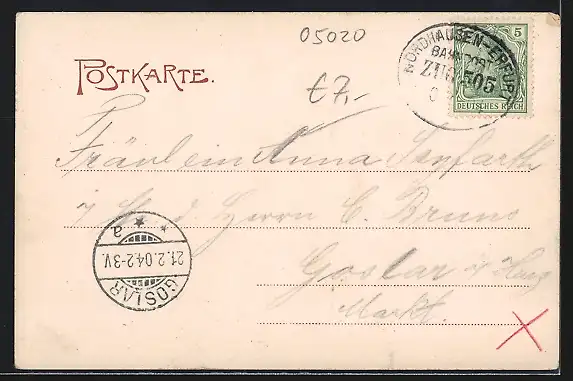 05020
POSTKARTE.
€7,-
NORDHAUSEN-ERFURT
BAHNPOST
ZUG 505
5
DEUTSCHES REICH
Fräulein Anna Seyfarth
Herrn C. Bruno
Goslar a/Harz
Markt.
GOSLAR
21.2.04.2-3V.
* * a